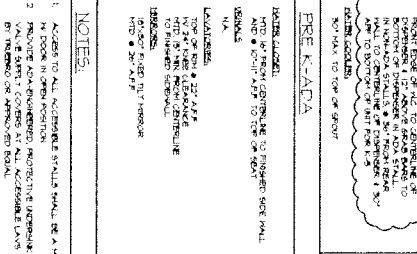 FRONT EDGE OF W.C. TO CENTERLINE OF
DISPENSER & 1 1/2" ABOVE GRAB BARS TO
BOTTOM OF DISPENSER IN ADA STALL.
IN NON-ADA STALLS, @ 36" FROM REAR
WALL TO CENTERLINE OF DISPENSER & 30"
AFF TO BOTTOM OF UNIT FOR K-5
WATER COOLERS:
30" MAX TO TOP OF SPOUT
PRE K-ADA
WATER CLOSET:
MTD FROM CENTERLINE TO FINISHED SIDE WALL
AND @ A.F.F. TO TOP OF SEAT
URINALS:
N.A.
LAVATORIES:
TOP OF RIM @ 22" A.F.F.
W/ KNEE CLEARANCE
MTD 15" MIN FROM CENTERLINE
TO FINISHED SIDEWALL
MIRRORS:
FIXED TILT MIRROR
MTD @ A.F.F.
NOTES:
1. ACCESS TO ALL ACCESSIBLE STALLS SHALL BE A
W/ DOOR IN OPEN POSITION
2. PROVIDE ADA-ENGINEERED PROTECTIVE UNDERSINK
VALVE & SUPPLY COVERS AT ALL ACCESSIBLE LAVS
BY TRUEBRO OR APPROVED EQUAL